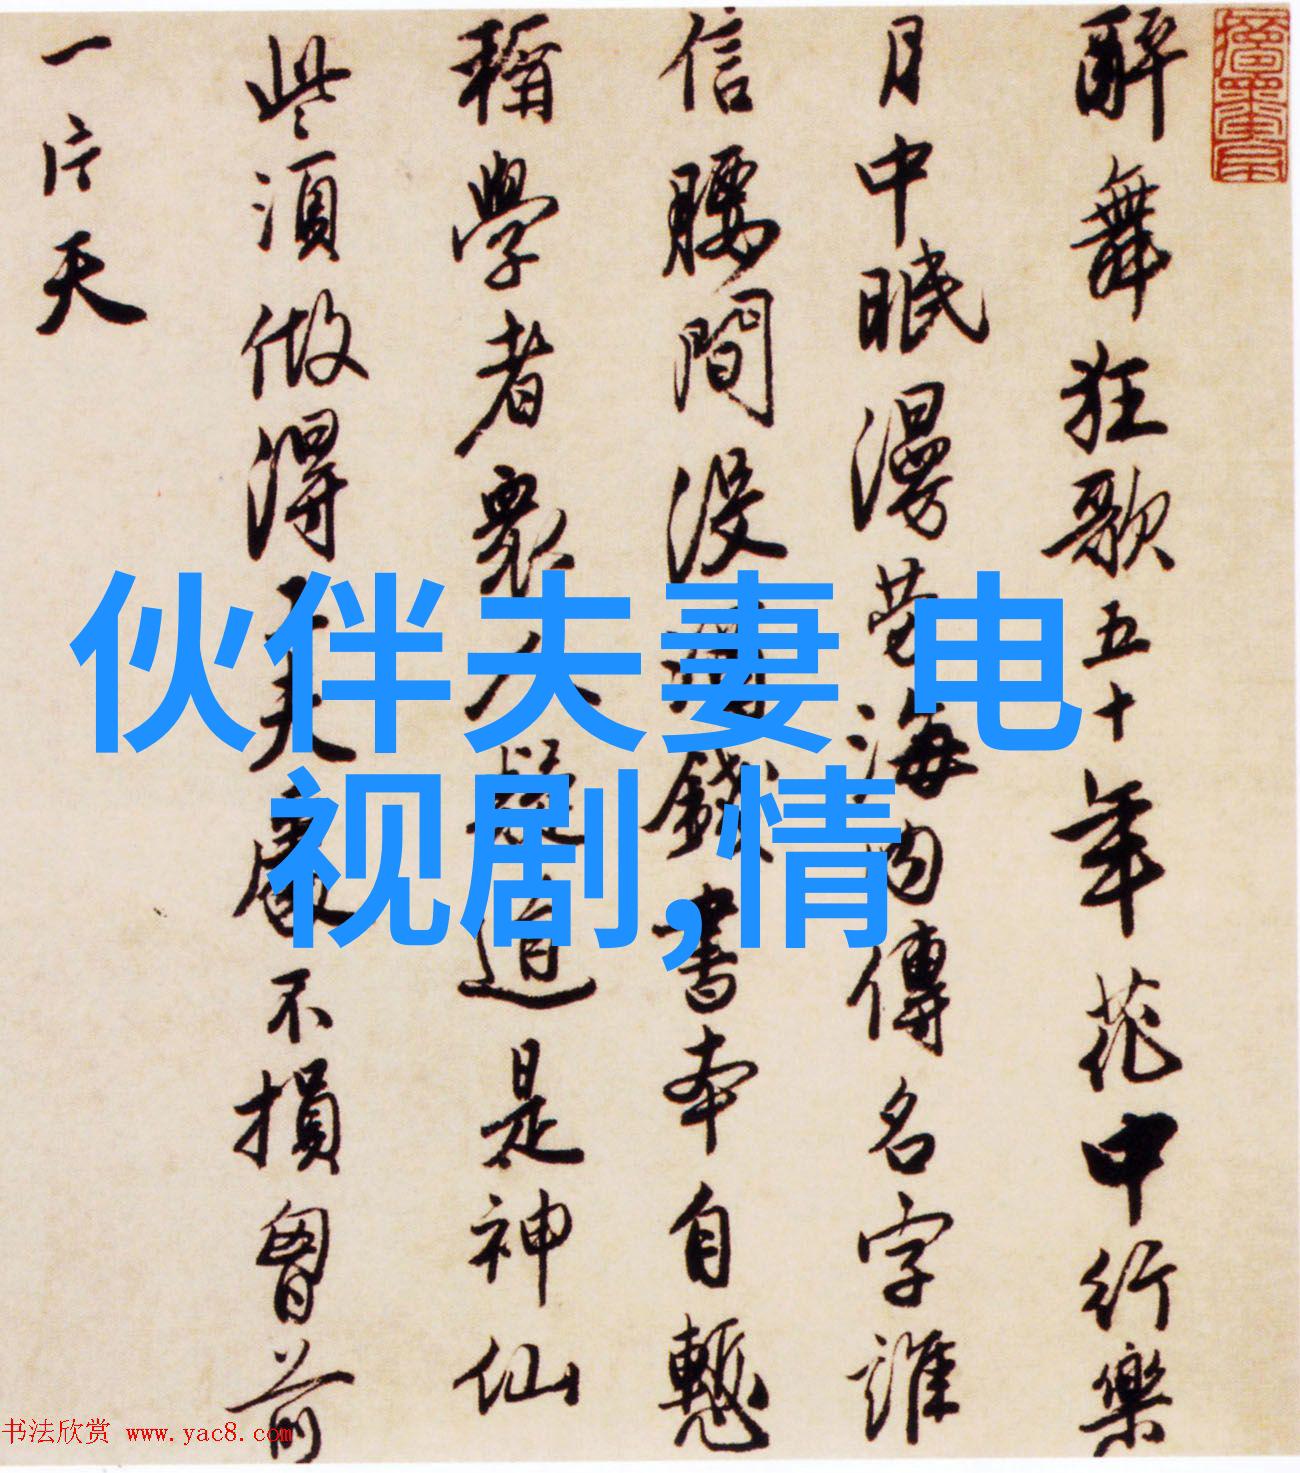 醉舞狂歌五十年花中行樂
月中眠漫勞海内傳名字誰
信腰間没酒錢書本自慙
稱學者衆人疑道是神仙
些須做得工夫處不損胷前
一片天
伙伴夫妻 电
视剧,情
书法欣赏 www.yac8.com